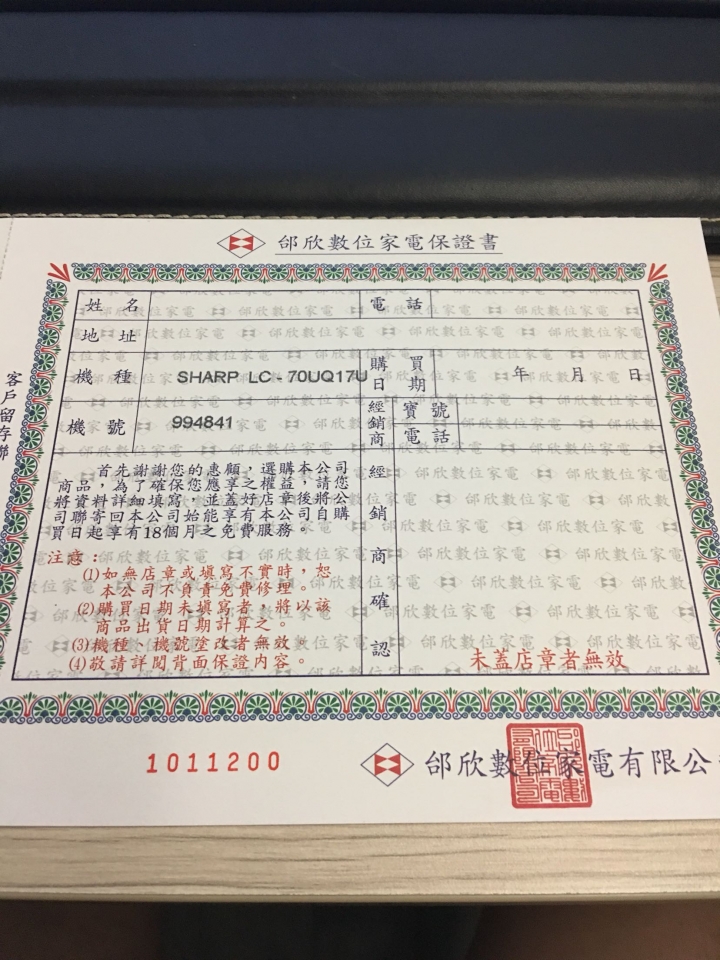 邰欣數位家電保證書
姓名 電話
地址
機種 SHARP LC-70UQ17U 購買日期 年 月 日
機號 994841 經銷商 寶號
電話
首先謝謝您的惠顧，選購本公司
商品，為了確保您應享之權益，請您
將資料詳細填寫，並蓋好店章後將公
司聯寄回本公司始能享有本公司自購
買日起享有18個月之免費服務。
注意：
(1)如無店章或填寫不實時，恕
本公司不負責免費修理。
(2)購買日期未填寫者，將以該
商品出貨日期計算之。
(3)機種、機號塗改者無效。
(4)敬請詳閱背面保證內容。
經銷商確認
未蓋店章者無效
客戶留存聯
1011200
邰欣數位家電有限公